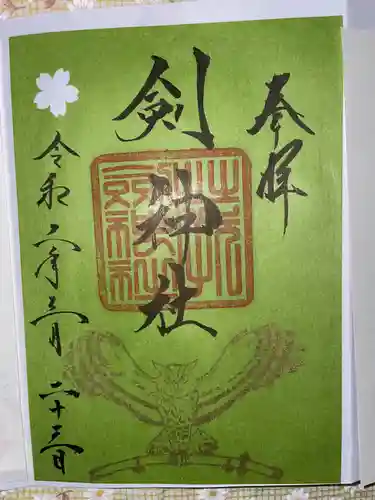 奉拝
剣神社
令和六年三月二十三日